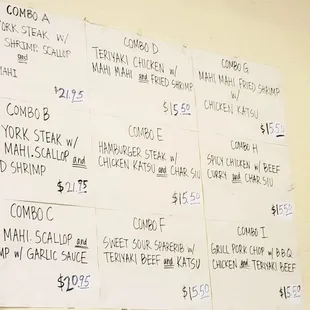 COMBO A
YORK STEAK W/
SHRIMP. SCALLOP
and
MAHI
$21.95
COMBO B
YORK STEAK W/
MAHI. SCALLOP and
D SHRIMP
$21.95
COMBO C
MAHI. SCALLOP and
MP W/ GARLIC SAUCE
$20.95
COMBO D
TERIYAKI CHICKEN W/
MAHI MAHI and FRIED SHRIMP
$15.50
COMBO E
HAMBURGER STEAK W/
CHICKEN KATSU and CHAR SIU
$15.50
COMBO F
SWEET SOUR SPARERIB W/
TERIYAKI BEEF and KATSU
$15.50
COMBO G
MAHI MAHI FRIED SHRIMP
W/
CHICKEN KATSU
$15.50
COMBO H
SPICY CHICKEN W/ BEEF
CURRY and CHAR SIU
$15.50
COMBO I
GRILL PORK CHOP W/ B.B.Q
CHICKEN and TERIYAKI BEEF
$15.50